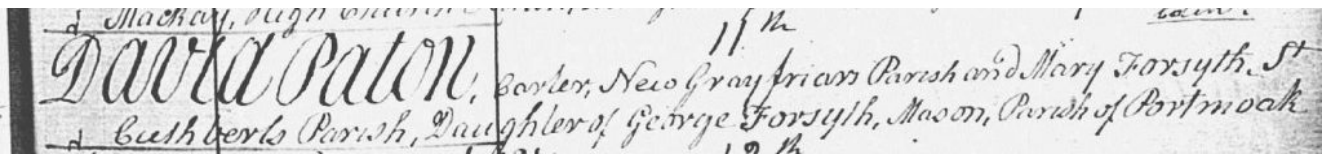 Mackay, High Church
11th
David Paton, Carter, New Grayfriars Parish and Mary Forsyth, St
Cuthberts Parish, Daughter of George Forsyth, Mason, Parish of Portmoak
12th